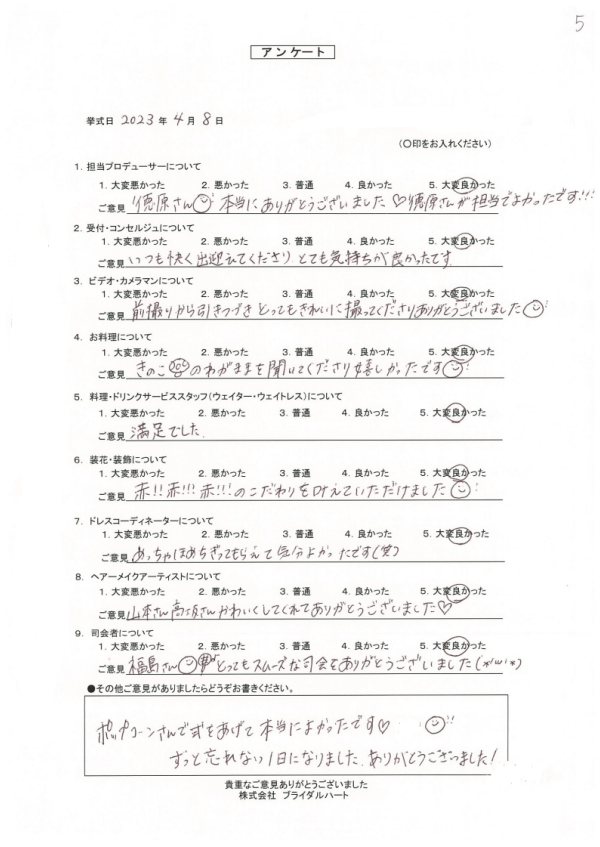 5
アンケート
挙式日 2023 年 4 月 8 日
(○印をお入れください)
1. 担当プロデューサーについて
1. 大変悪かった 2. 悪かった 3. 普通 4. 良かった 5. 大変良かった
ご意見 德原さん 本当にありがとうございました♡德原さんが担当でよかったです!!!
2. 受付・コンセルジュについて
1. 大変悪かった 2. 悪かった 3. 普通 4. 良かった 5. 大変良かった
ご意見 いつも快く出迎えてくださり とても気持ちが良かったです
3. ビデオ・カメラマンについて
1. 大変悪かった 2. 悪かった 3. 普通 4. 良かった 5. 大変良かった
ご意見 前撮りから引きつづき とってもきれいに撮ってくださりありがとうございました
4. お料理について
1. 大変悪かった 2. 悪かった 3. 普通 4. 良かった 5. 大変良かった
ご意見 きのこ のわがままを聞いてくださり嬉しかったです
5. 料理・ドリンクサービススタッフ(ウェイター・ウェイトレス)について
1. 大変悪かった 2. 悪かった 3. 普通 4. 良かった 5. 大変良かった
ご意見 満足でした.
6. 装花・装飾について
1. 大変悪かった 2. 悪かった 3. 普通 4. 良かった 5. 大変良かった
ご意見 赤!!赤!!!赤!!!のこだわりを叶えていただけました
7. ドレスコーディネーターについて
1. 大変悪かった 2. 悪かった 3. 普通 4. 良かった 5. 大変良かった
ご意見 めっちゃほめちぎってもらえて気分よかったです(笑)
8. ヘアーメイクアーティストについて
1. 大変悪かった 2. 悪かった 3. 普通 4. 良かった 5. 大変良かった
ご意見 山本さん高坂さんかわいくしてくれてありがとうございました♡
9. 司会者について
1. 大変悪かった 2. 悪かった 3. 普通 4. 良かった 5. 大変良かった
ご意見 福島さん とってもスムーズな司会をありがとうございました(*'ω'*)
●その他ご意見がありましたらどうぞお書きください。
ポップコーンさんで式をあげて本当によかったです♡ !!
ずっと忘れない1日になりました.ありがとうございました!
貴重なご意見ありがとうございました
株式会社 ブライダルハート